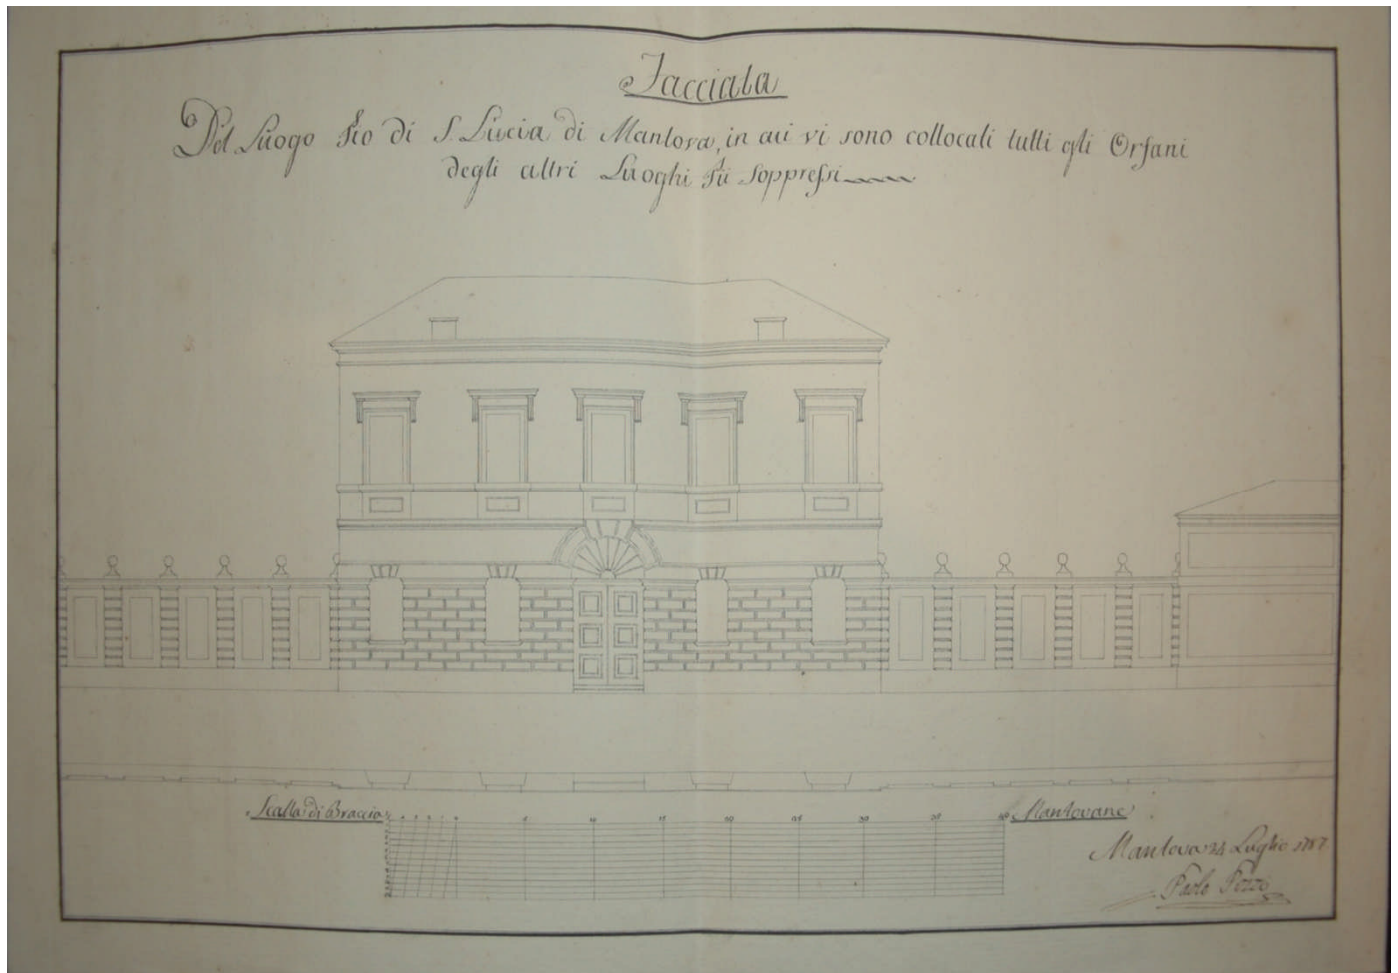 Facciata
Del Luogo Pio di S. Lucia di Mantova, in cui vi sono collocati tutti gli Orfani
degli altri Luoghi Pii soppressi
Scalla di Braccia Mantovane
5 10 15 20 25 30 35 40
Mantova 24 Luglio 1787
Paolo Pozzo